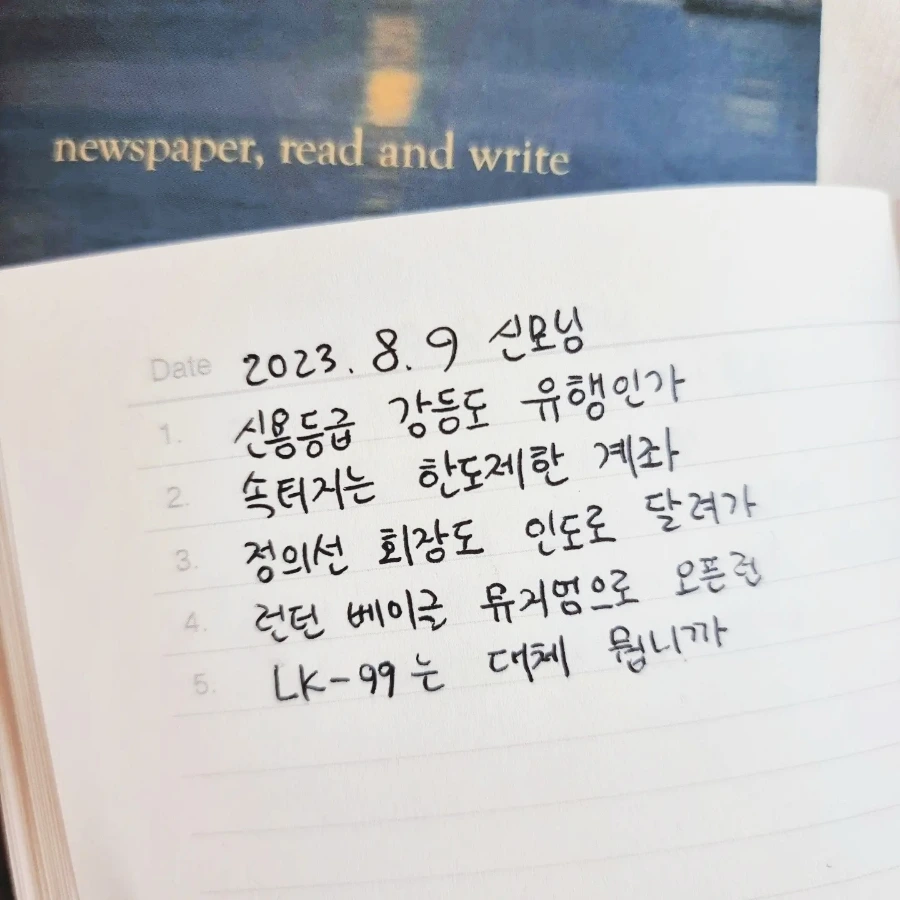 newspaper, read and write
Date 2023. 8. 9 신모닝
1. 신용등급 강등도 유행인가
2. 속터지는 한도제한 계좌
3. 정의선 회장도 인도로 달려가
4. 런던 베이글 뮤지엄으로 오픈런
5. LK-99는 대체 뭡니까